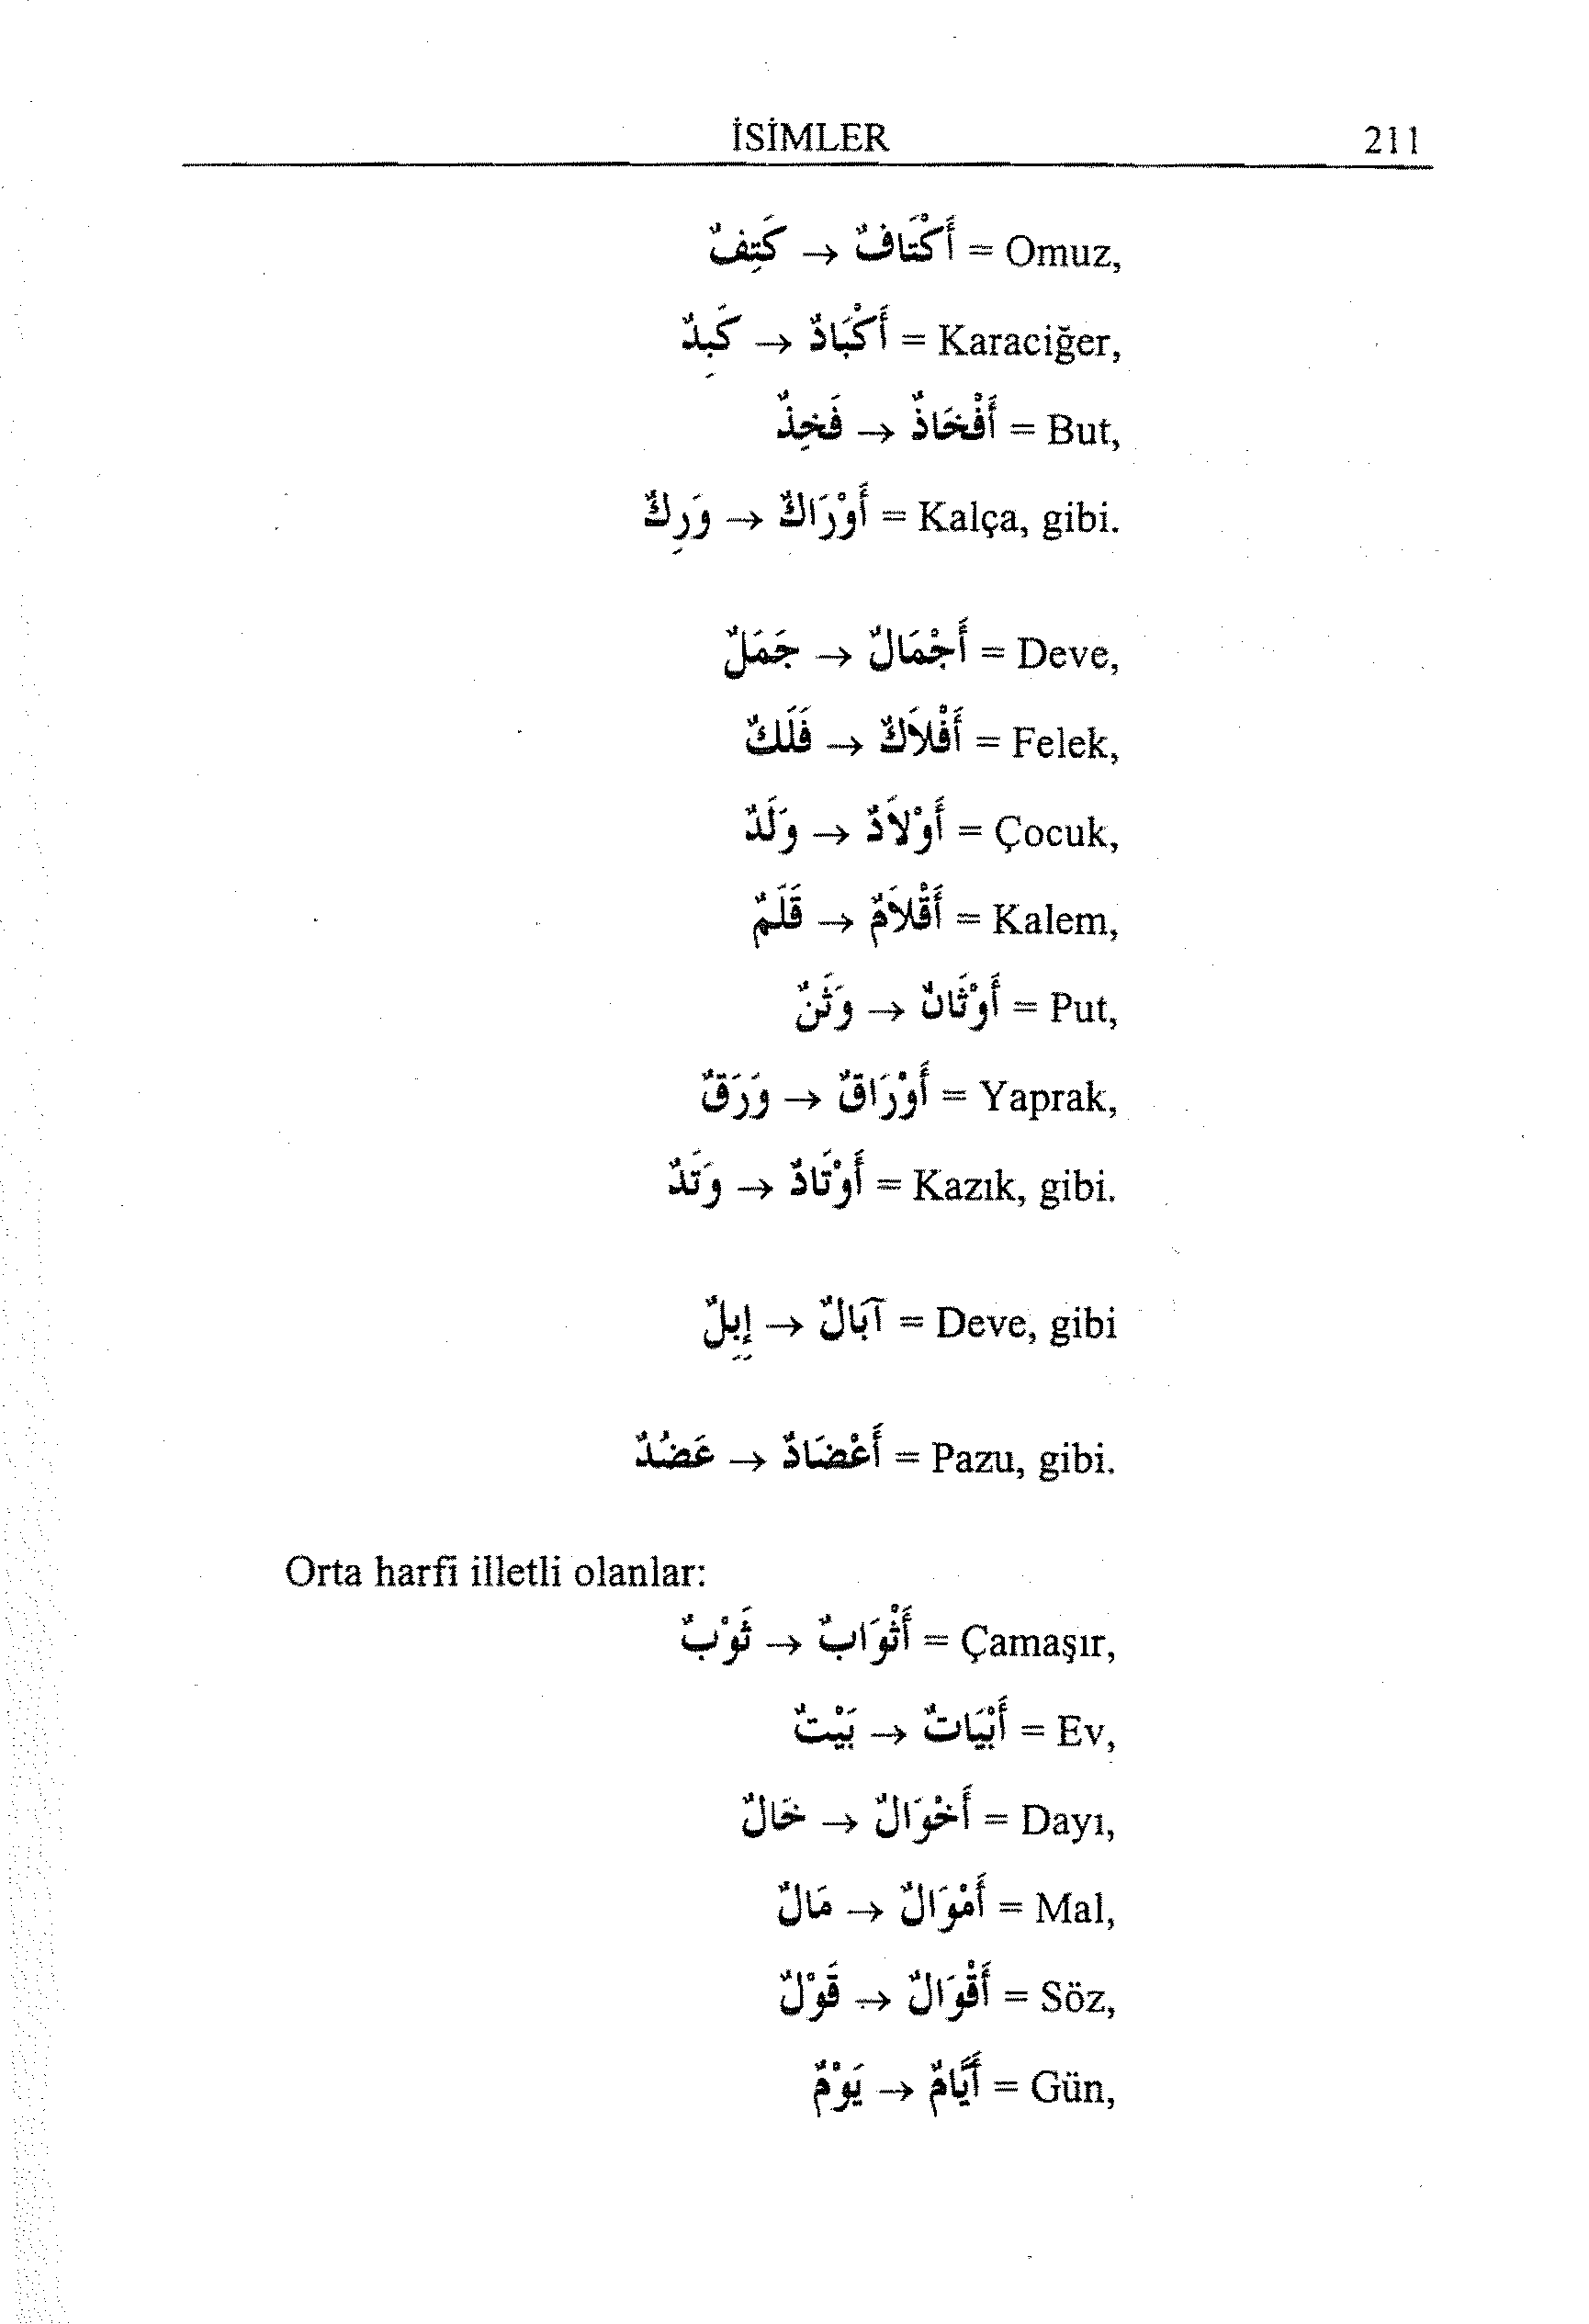 İSİMLER 211
كَتِفٌ → أَكْتَافٌ = Omuz,
كَبِدٌ → أَكْبَادٌ = Karaciğer,
فَخِذٌ → أَفْخَاذٌ = But,
وَرِكٌ → أَوْرَاكٌ = Kalça, gibi.
جَمَلٌ → أَجْمَالٌ = Deve,
فَلَكٌ → أَفْلاَكٌ = Felek,
وَلَدٌ → أَوْلاَدٌ = Çocuk,
قَلَمٌ → أَقْلاَمٌ = Kalem,
وَثَنٌ → أَوْثَانٌ = Put,
وَرَقٌ → أَوْرَاقٌ = Yaprak,
وَتَدٌ → أَوْتَادٌ = Kazık, gibi.
إِبِلٌ → آبَالٌ = Deve, gibi
عَضُدٌ → أَعْضَادٌ = Pazu, gibi.
Orta harfi illetli olanlar:
ثَوْبٌ → أَثْوَابٌ = Çamaşır,
بَيْتٌ → أَبْيَاتٌ = Ev,
خَالٌ → أَخْوَالٌ = Dayı,
مَالٌ → أَمْوَالٌ = Mal,
قَوْلٌ → أَقْوَالٌ = Söz,
يَوْمٌ → أَيَّامٌ = Gün,